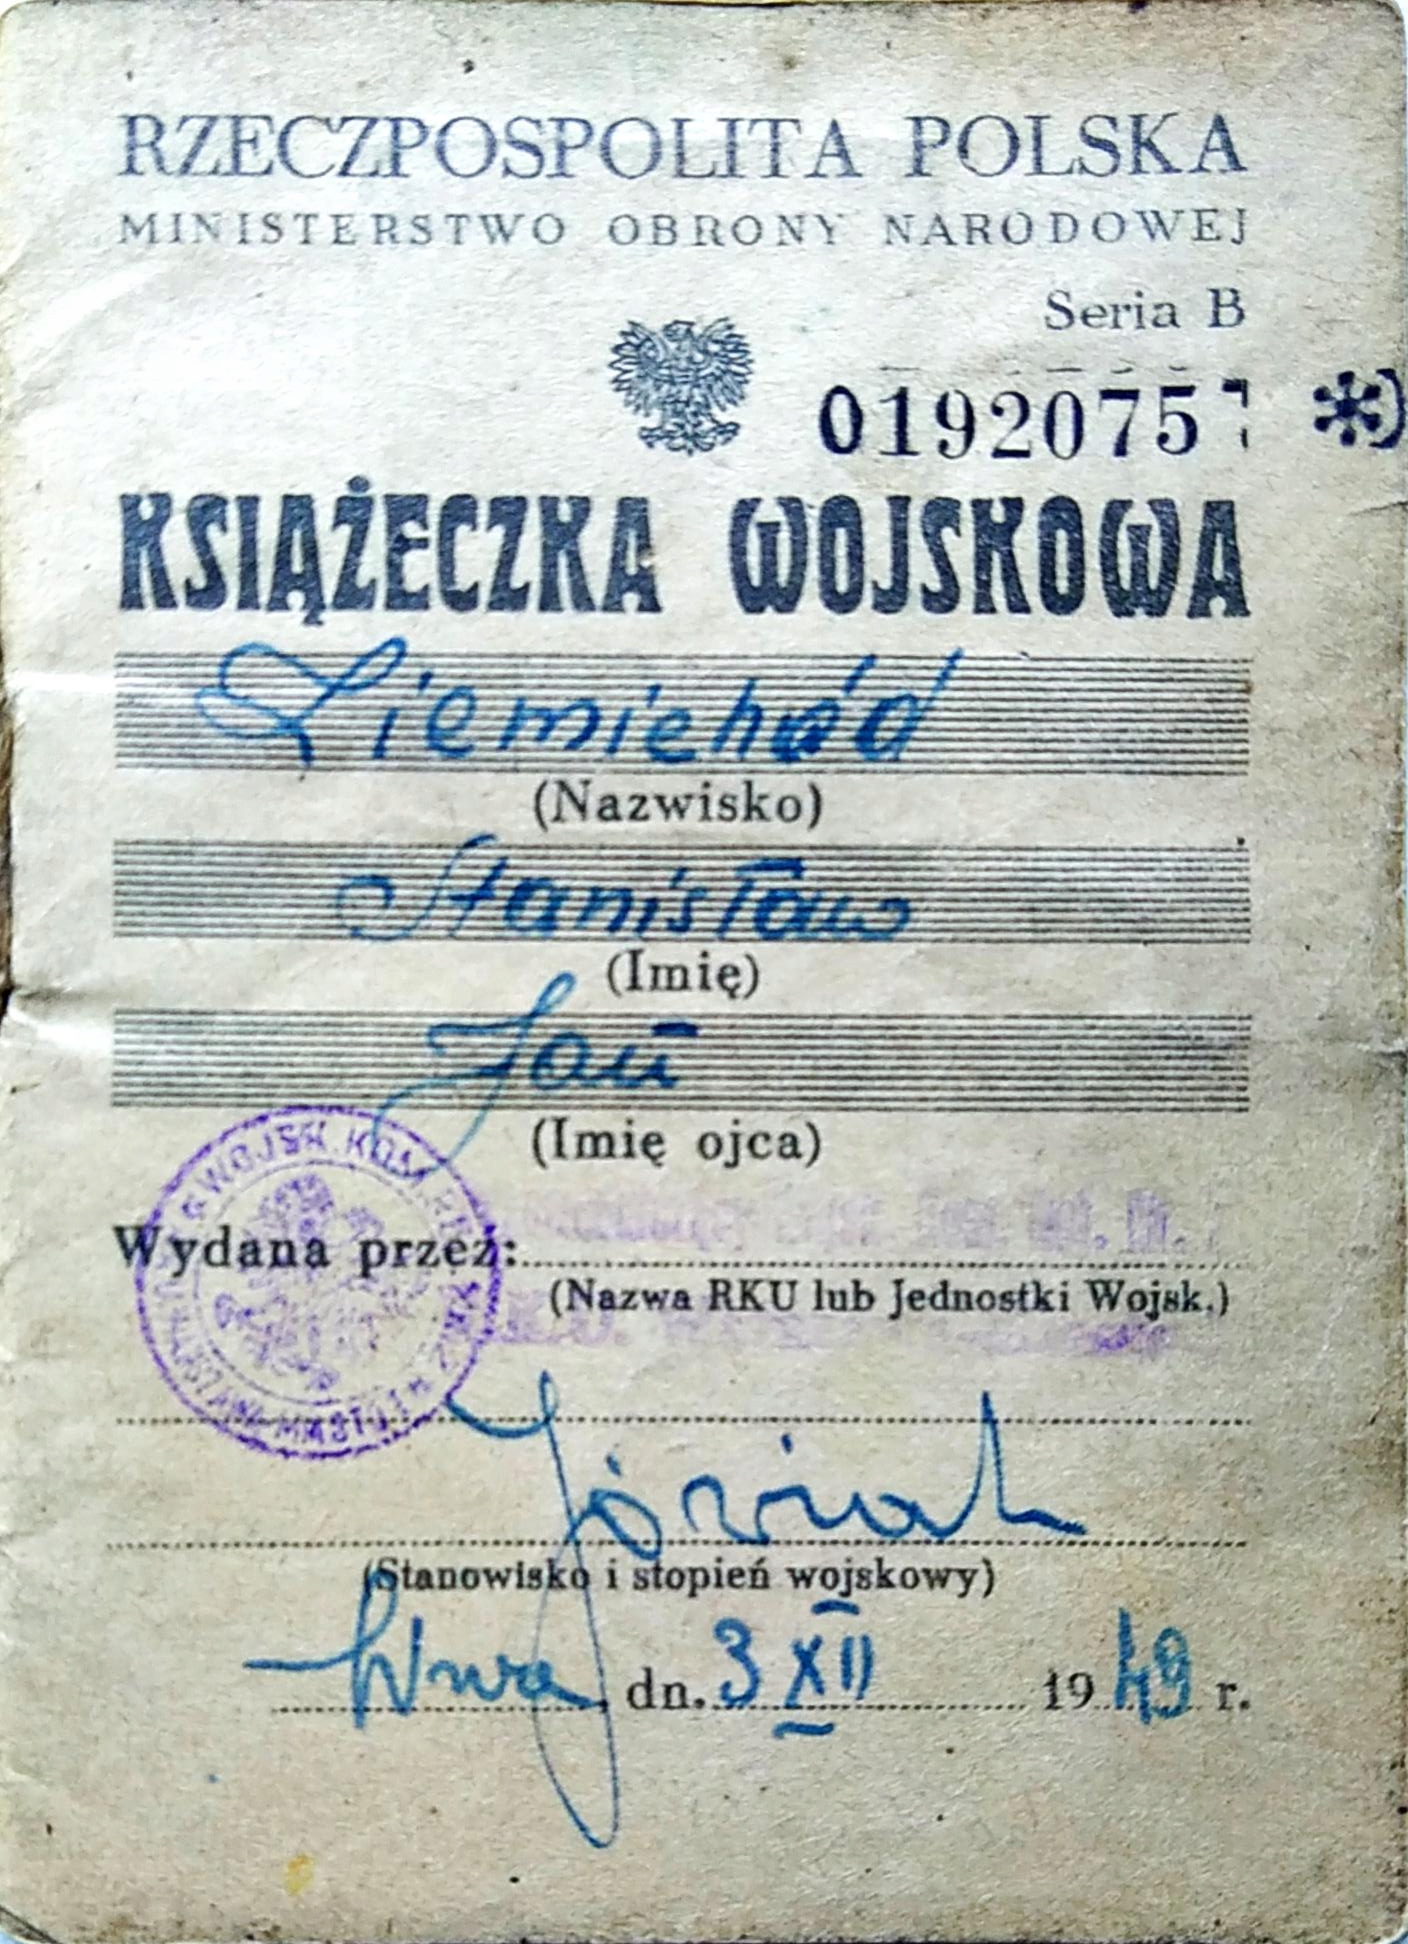 RZECZPOSPOLITA POLSKA
MINISTERSTWO OBRONY NARODOWEJ
Seria B
01920757 *)
KSIĄŻECZKA WOJSKOWA
(Nazwisko)
Stanisław
(Imię)
Jan
(Imię ojca)
WOJSK. KOM.
MIASTO
Wydana przez:
(Nazwa RKU lub Jednostki Wojsk.)
Jóźwiak
(Stanowisko i stopień wojskowy)
Wwa, dn. 3 XII 1949 r.